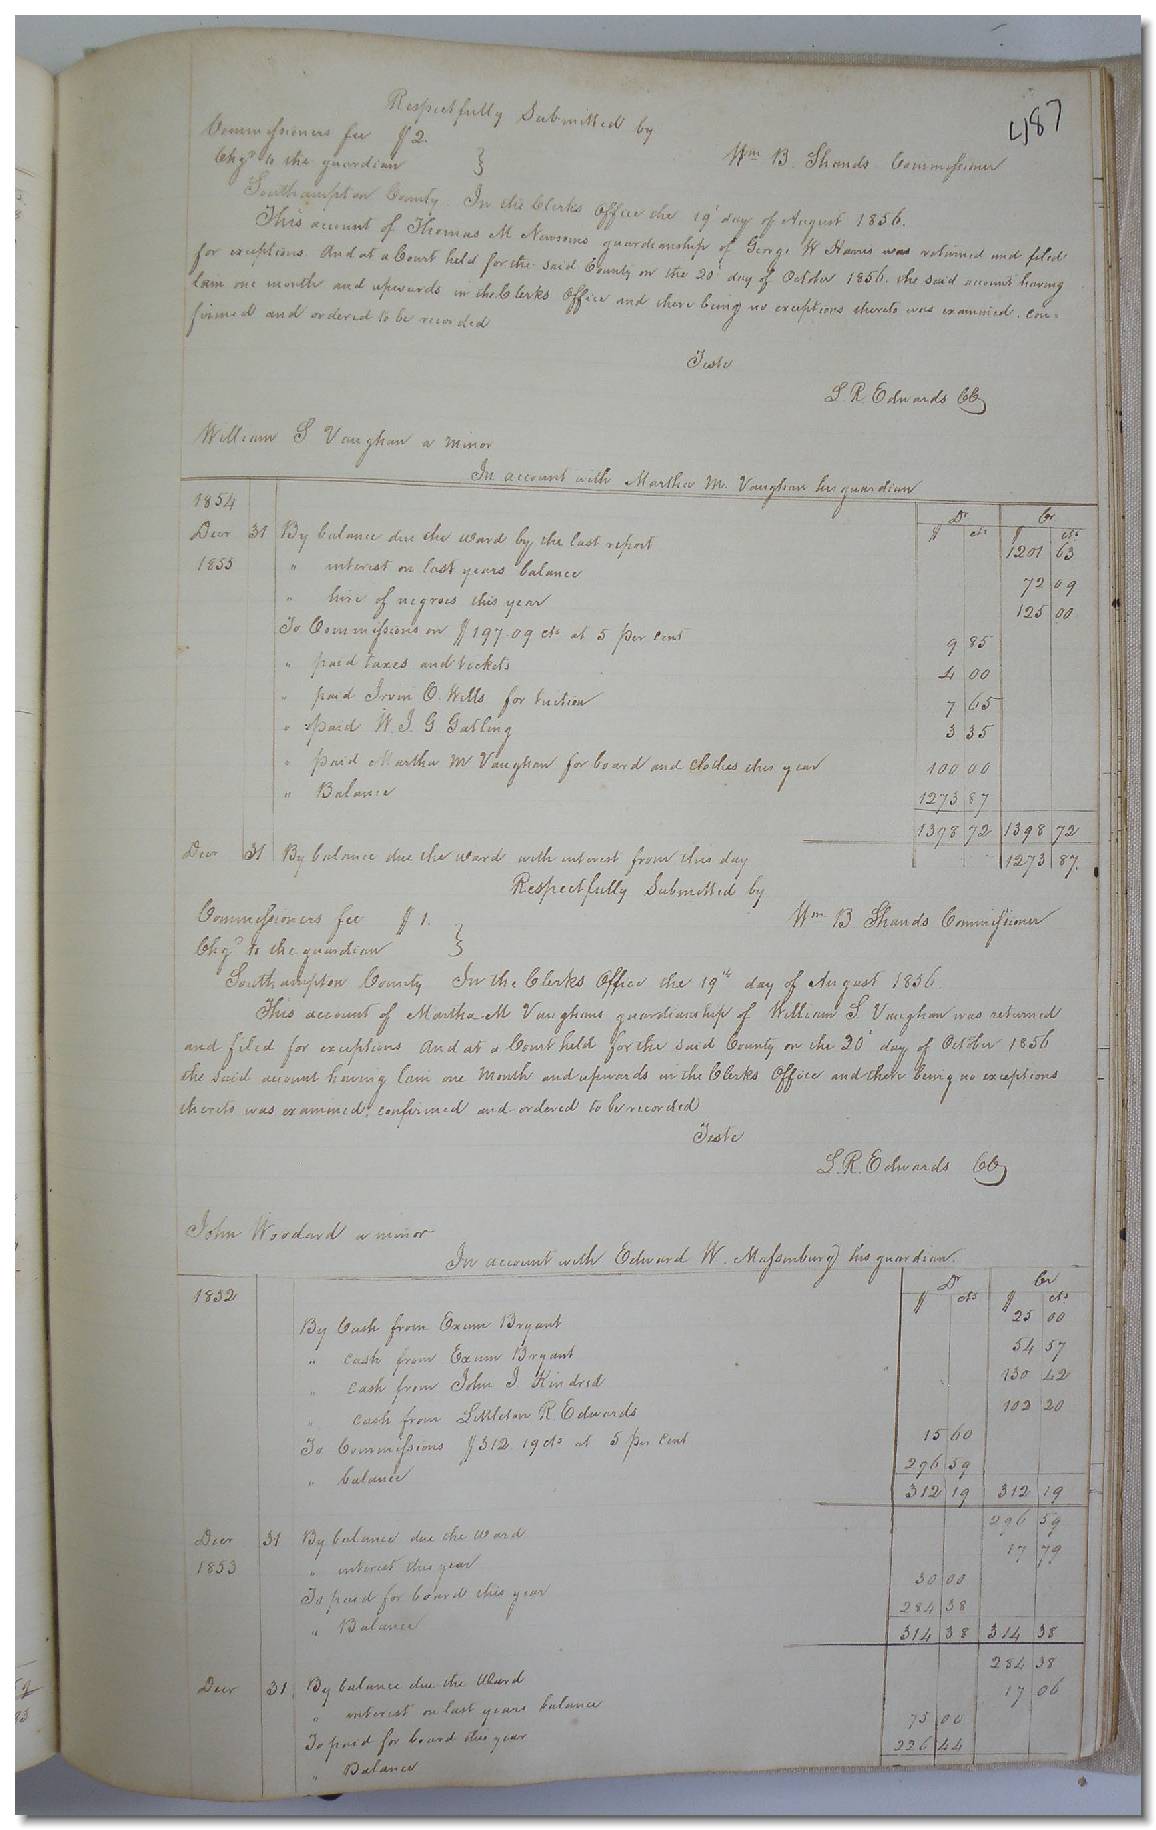 487
Respectfully Submitted by
Commissioners fee $2.
Chgd to the guardian }
Wm B. Shands Commissioner
Southampton County. In the Clerks Office the 19' day of August 1856.
This account of Thomas M Newsoms guardianship of George W Harris was returned and filed
for exceptions. And at a Court held for the said County on the 20' day of October 1856. the said account having
lain one month and upwards in the Clerks Office and there being no exceptions thereto was examined. con=
firmed and ordered to be recorded
Teste
L. R. Edwards CC
William S Vaughan a minor
In account with Martha M. Vaughan his guardian
1854 Dr Cr
$ cts $ cts
Decr 31 By balance due the ward by the last report 1201 63
1855 " interest on last years balance 72 09
" hire of negroes this year 125 00
To Commissions on $197.09 cts at 5 per cent 9 85
" paid taxes and tickets 4 00
" paid Irvin O. Wills for tuition 7 65
" paid W. J. G Gatling 3 35
" paid Martha M Vaughan for board and clothes this year 100 00
" Balance 1273 87
1398 72 1398 72
Decr 31 By balance due the ward with interest from this day 1273 87.
Respectfully Submitted by
Commissioners fee $1.
Wm B. Shands Commissioner
Chgd to the guardian }
Southampton County In the Clerks Office the 19th day of August 1856.
This account of Martha M Vaughans guardianship of William S. Vaughan was returned
and filed for exceptions And at a Court held for the said County on the 20' day of October 1856
the said account having lain one month and upwards in the Clerks Office and there being no exceptions
thereto was examined, confirmed and ordered to be recorded
Teste
L. R. Edwards CC
John Woodard a minor
In account with Edward W. Massenburg his guardian.
1852 Dr Cr
$ cts $ cts
By Cash from Exum Bryant 25 00
" cash from Exum Bryant 54 57
" cash from John J. Kindred 130 42
" cash from Littleton R. Edwards 102 20
To Commissions $312 19cts at 5 per cent 15 60
" balance 296 59
312 19 312 19
Decr 31 By balance due the ward 296 59
1853 " interest this year 17 79
To paid for board this year 30 00
" Balance 284 38
314 38 314 38
Decr 31 By balance due the ward 284 38
" interest on last years balance 17 06
To paid for board this year 75 00
" Balance 226 44